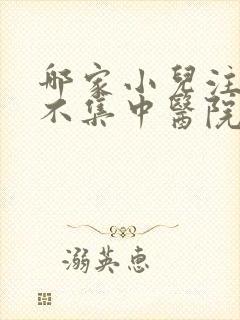 邮家小兒注
不集中醫院
溺英惠